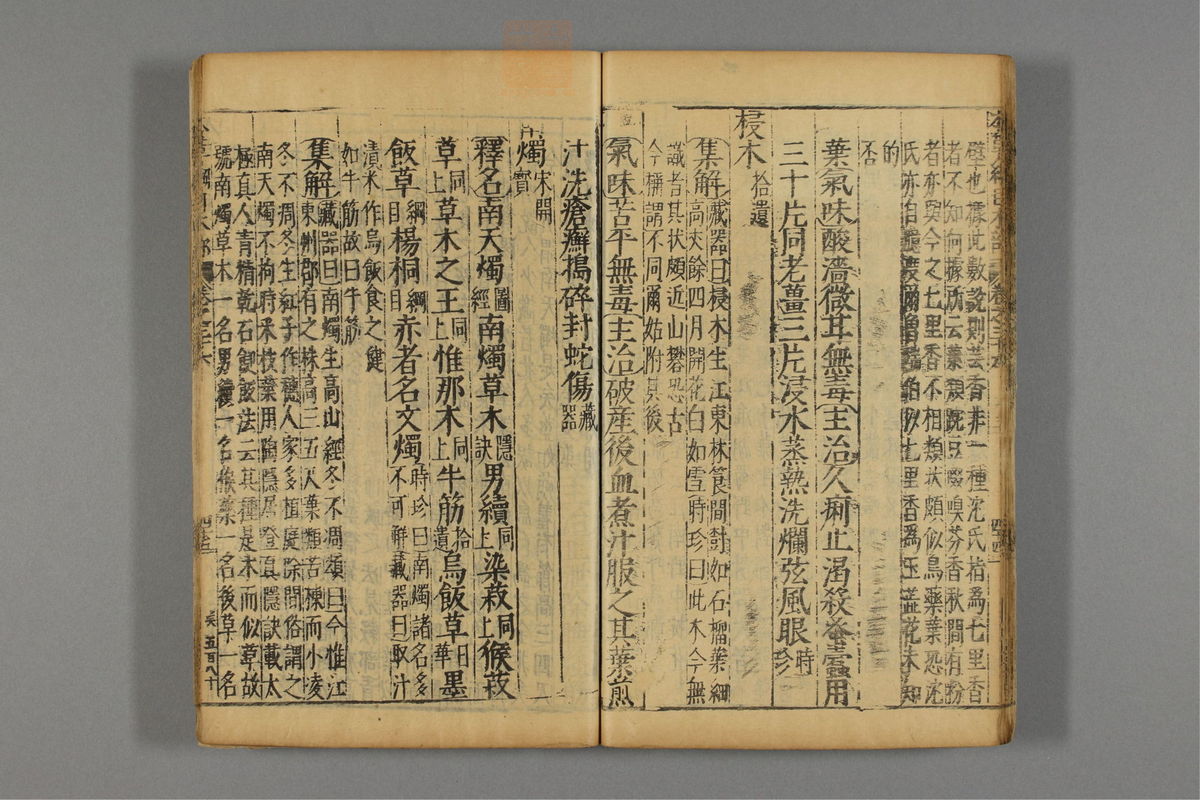 癖也據此數說則芸香非一種沈氏指為七里香
者不知何據所云葉類豌豆啜嗅芬香秋間有粉
者亦與今之七里香不相類狀頗似烏藥葉恐沈
氏亦自
的
否
葉氣味酸濇微耳無毒主治久痢止渴殺蟲用
三十片同老薑三片浸水蒸熟洗爛弦風眼時珍
梫木拾遺
集解藏器曰梫木生江東林筤間樹如石榴葉細
高丈餘四月開花白如雪時珍曰此木今無
識者其狀頗近山礬恐古
今稱謂不同爾姑附其後
氣味苦平無毒主治破産後血煮汁服之其葉煎
汁洗瘡癬搗碎封蛇傷藏器
燭宋開寶
釋名南天燭圖經南燭草木隱訣男續同上染菽同上猴菽
草同上草木之王同上惟那木同上牛筋拾遺烏飯草日華墨
飯草綱目楊桐綱目赤者名文燭時珍曰南燭諸名多
不可解藏器曰取汁
漬米作烏飯食之健
如牛筋故曰牛筋
集解藏器曰南燭生高山經冬不凋頌曰今惟江
東州郡有之株高三五尺葉類苦楝而小凌
冬不凋冬生紅子作穗人家多植庭除間俗謂之
南天燭不拘時采枝葉用陶隱居登真隱訣載太
極真人青精乾石䭀飯法云其種是木而似草故
號南燭草木一名男續一名猴藥一名後草一名